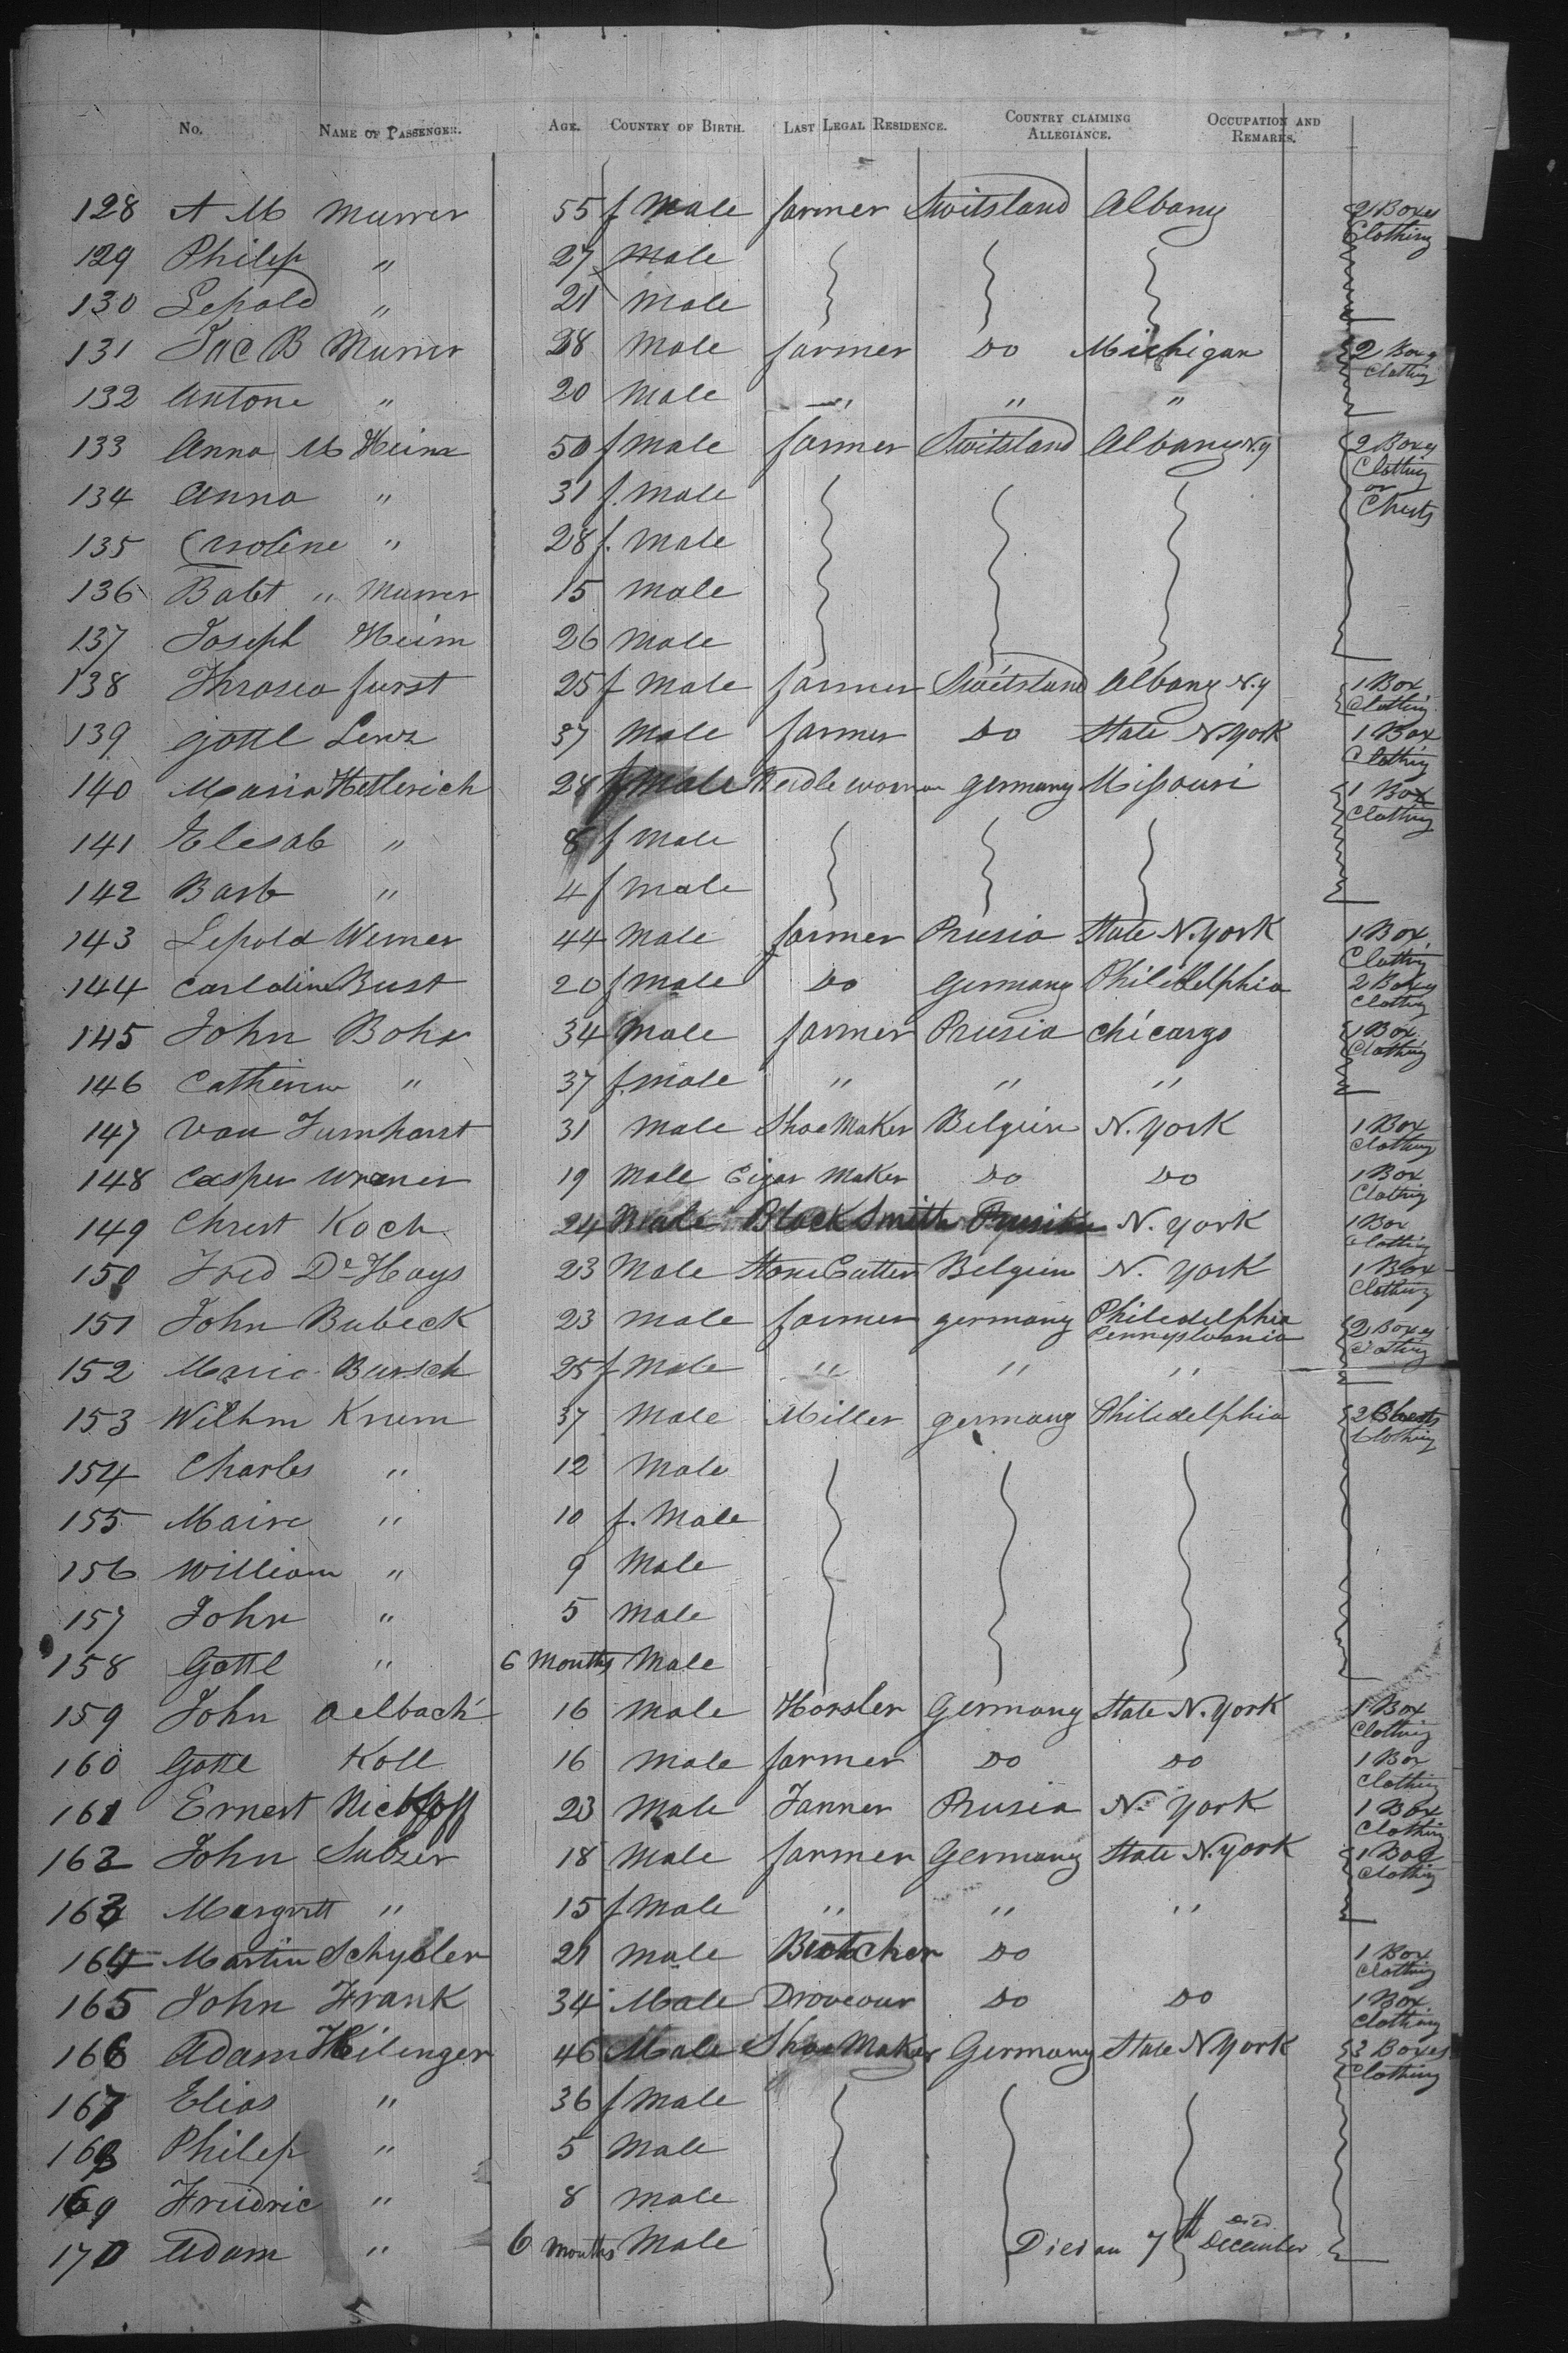 No. NAME OF PASSENGER. AGE. COUNTRY OF BIRTH. LAST LEGAL RESIDENCE. COUNTRY CLAIMING ALLEGIANCE. OCCUPATION AND REMARKS.
128 A M Murrer 55 f Male farmer Switsland Albany 2 Boxes Clothing
129 Philip " 27 Male
130 Lepold " 21 Male
131 Jac B Murrer 28 Male farmer Do Michigan 2 Boxes Clothing
132 Antone " 20 Male " " "
133 Anna M Heim 50 f Male farmer Switsland Albany N.y 2 Boxes Clothing or Chests
134 Anna " 31 f. Male
135 Caroline " 28 f. Male
136 Babt " Murrer 15 Male
137 Joseph Heim 26 Male
138 Thrasea furst 25 f Male farmer Switsland Albany N.y 1 Box Clothing
139 gottl Lenz 37 Male farmer Do State N.york 1 Box Clothing
140 Maria Hetlerich 28 f Male Needle woman germany Missouri 1 Box Clothing
141 Elesab " 8 f Male
142 Barb " 4 f male
143 Lepold Werner 44 Male farmer Prusia State N.york 1 Box Clothing
144 Carldine Bust 20 f male Do Germany Philidelphia 2 Boxes Clothing
145 John Bohr 34 Male farmer Prusia Chicargo 1 Box Clothing
146 Catherine " 37 f. male " " "
147 Van Turnharst 31 Male Shoe Maker Belgien N. york 1 Box Clothing
148 Casper Wrener 19 Male Cigar Maker Do Do 1 Box Clothing
149 Christ Koch 24 Male Black Smith N. york 1 Box Clothing
150 Fred De Hays 23 Male Stone Cutter Belgien N. york 1 Box Clothing
151 John Bubeck 23 Male farmer germany Philedelphia Pennsylvania 2 Boxes Clothing
152 Maria Bursch 25 f Male " " "
153 Wilhm Krum 37 Male Miller germany Philidelphia 2 Chests Clothing
154 Charles " 12 Male
155 Maire " 10 f. Male
156 William " 9 Male
157 John " 5 Male
158 Gottl " 6 Months Male
159 John Aelbach 16 Male Horsler Germany State N.york 1 Box Clothing
160 Gottl Koll 16 Male farmer Do Do 1 Box Clothing
161 Ernest 23 Male Tanner Prusia N. york 1 Box Clothing
162 John Sulzer 18 Male farmer Germany State N.york 1 Box Clothing
163 Margrett " 15 f Male " " "
164 Martin Schysler 21 Male Butcher Do 1 Box Clothing
165 John Frank 34 Male Do Do 1 Box Clothing
166 Adam Heilenger 46 Male Shoe Maker Germany State N york 3 Boxes Clothing
167 Elias " 36 f Male
168 Philip " 5 Male
169 Friedric " 8 Male
170 Adam " 6 months Male Died on 7th December Died